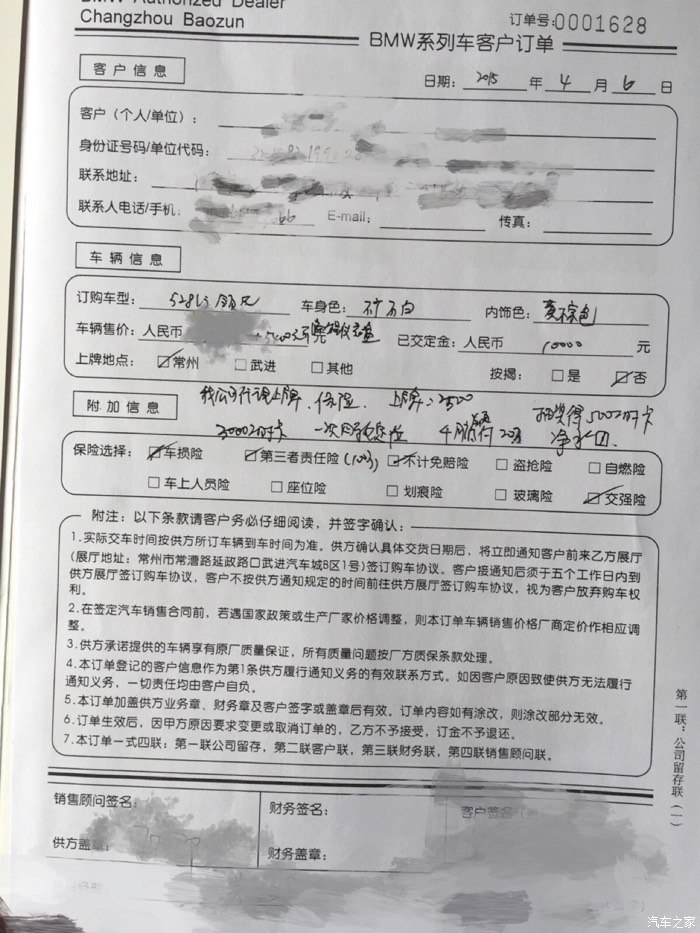 BMW Authorized Dealer
Changzhou Baozun
订单号:0001628
BMW系列车客户订单
客户信息
日期: 2015 年 4 月 6 日
客户（个人/单位）:
身份证号码/单位代码:
联系地址:
联系人电话/手机: E-mail: 传真:
车辆信息
订购车型: 528Li 领先 车身色: 矿石白 内饰色: 摩卡棕色
车辆售价: 人民币 已交定金: 人民币 10000 元
上牌地点: ☑常州 □武进 □其他 按揭: □是 ☑否
附加信息
我公司代理上牌、保险 上牌:2500
保险选择: ☑车损险 ☑第三者责任险 ☑不计免赔险 □盗抢险 □自燃险
□车上人员险 □座位险 □划痕险 □玻璃险 ☑交强险
附注：以下条款请客户务必仔细阅读，并签字确认：
1.实际交车时间按供方所订车辆到车时间为准。供方确认具体交货日期后，将立即通知客户前来乙方展厅
(展厅地址：常州市常漕路延政路口武进汽车城B区1号)签订购车协议。客户接通知后须于五个工作日内到
供方展厅签订购车协议，客户不按供方通知规定的时间前往供方展厅签订购车协议，视为客户放弃购车权
利。
2.在签定汽车销售合同前，若遇国家政策或生产厂家价格调整，则本订单车辆销售价格厂商定价作相应调
整。
3.供方承诺提供的车辆享有原厂质量保证，所有质量问题按厂方质保条款处理。
4.本订单登记的客户信息作为第1条供方履行通知义务的有效联系方式。如因客户原因致使供方无法履行
通知义务，一切责任均由客户自负。
5.本订单加盖供方业务章、财务章及客户签字或盖章后有效。订单内容如有涂改，则涂改部分无效。
6.订单生效后，因甲方原因要求变更或取消订单的，乙方不予接受，订金不予退还。
7.本订单一式四联：第一联公司留存，第二联客户联，第三联财务联，第四联销售顾问联。
第一联：公司留存联（一）
销售顾问签名: 财务签名: 客户签名
供方盖章: 财务盖章:
汽车之家